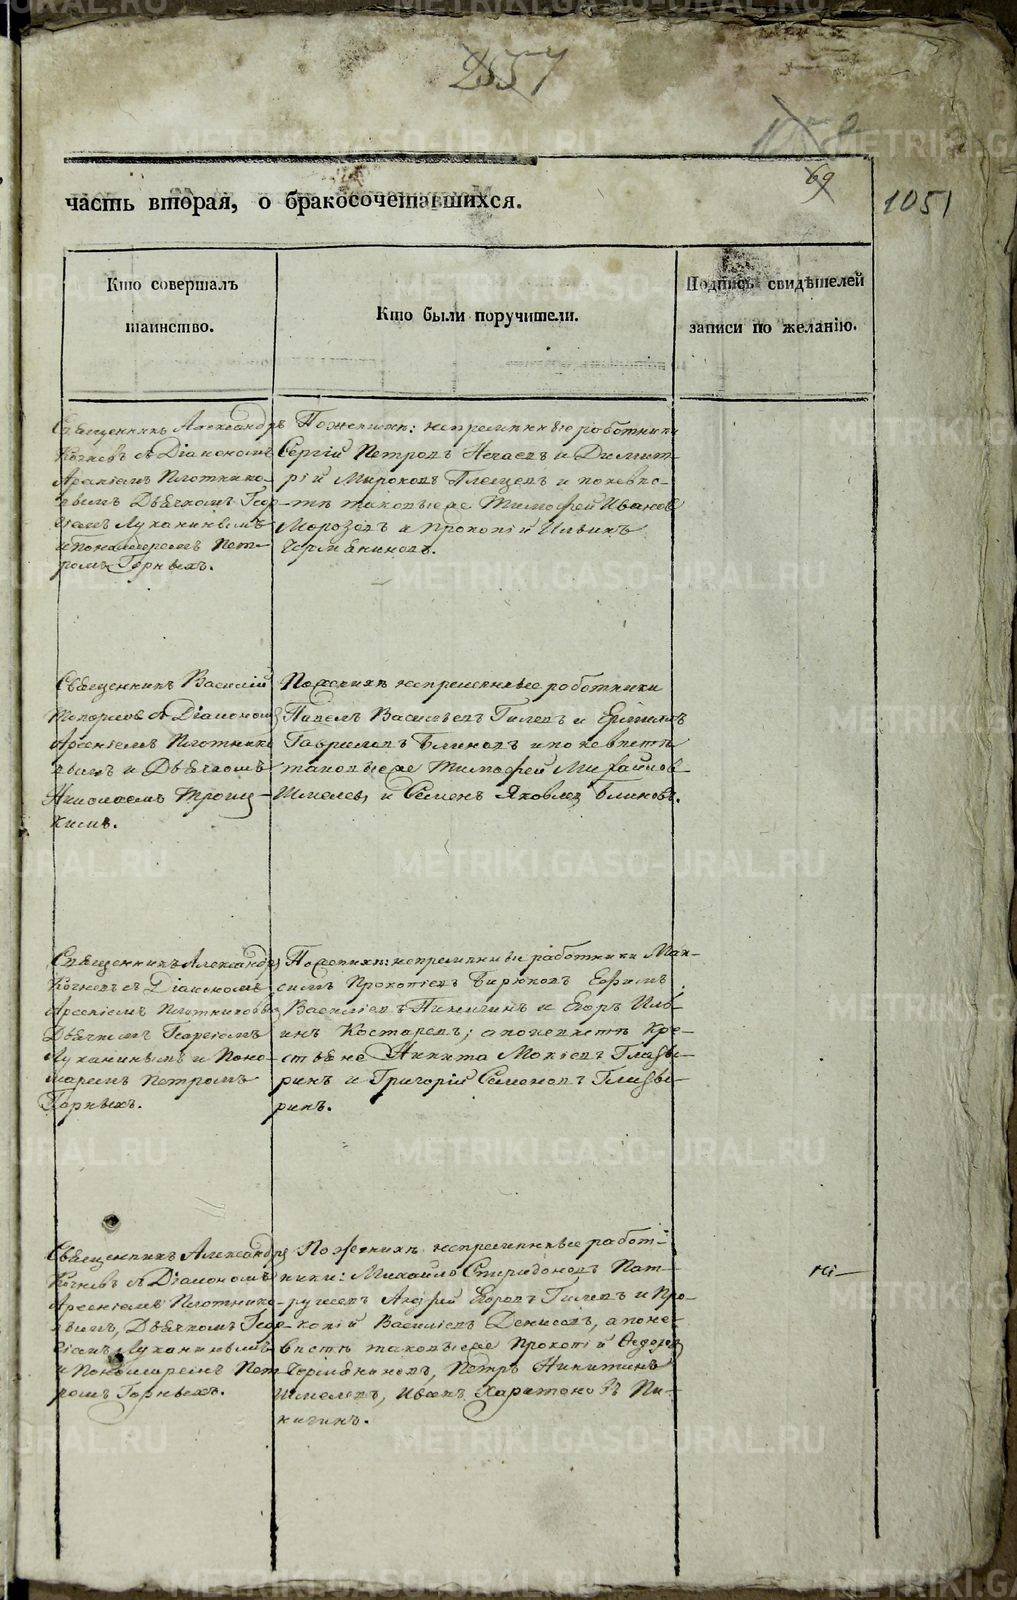 2557
69
1051
часть вторая, о бракосочетавшихся.
Кто совершалъ
таинство.
Кто были поручители.
Подпись свидѣтелей
записи по желанію.
Священникъ Александръ
Кочневъ с Діакономъ
Арсеніемъ Плотнико-
вымъ Дьячкомъ Геор-
гіемъ Луканинымъ
и Пономаремъ Пет-
ромъ Горныхъ.
По женихѣ: непременные работники
Сергій Петровъ Нечаевъ и Димит-
рій Мироновъ Глещевъ и по невѣс-
тѣ таковые же Тимофей Ивановъ
Морозовъ и Прокопій Ильинъ
Чермениновъ.
Священникъ Василій
Топорковъ с Діакономъ
Арсеніемъ Плотнико
вымъ и Дьячкомъ
Николаемъ Троиц-
кимъ.
По женихѣ непременные работники
Павелъ Васильевъ Гилевъ и
Гавриловъ Блиновъ и по невѣстѣ
таковые же Тимофей Михайловъ
Шмелевъ и Семенъ Яковлевъ Блиновъ.
Священникъ Александръ
Кочневъ с Діакономъ
Арсеніемъ Плотниковы
Дьячкомъ Георгіемъ
Луканинымъ и Поно-
маремъ Петромъ
Горныхъ.
По женихѣ: непременные работники Мак-
симъ Прокопіевъ Бирюковъ Ефимъ
Василіевъ Пикигинъ и Егоръ Иль-
инъ Костаревъ; а по невѣстѣ кре-
стьяне Никита Мокіевъ Глазы-
ринъ и Григорій Семеновъ Глазы-
ринъ.
Священникъ Александръ
Кочневъ с Діакономъ
Арсеніемъ Плотнико-
вымъ, Дьячкомъ Геор-
гіемъ Луканинымъ
и Пономаремъ Пет
ромъ Горныхъ.
По женихѣ непременные работ-
ники: Михайло Спиридоновъ Пат-
рушевъ Андрей Егоровъ Гилевъ и Про-
копій Василіевъ Денисовъ, а по не-
вѣстѣ таковые же Прокопій Федоровъ
Чермениновъ, Петръ Никитинъ
Шмелевъ, Иванъ Харитоновъ Пи-
кигинъ.
METRIKI.GASO-URAL.RU